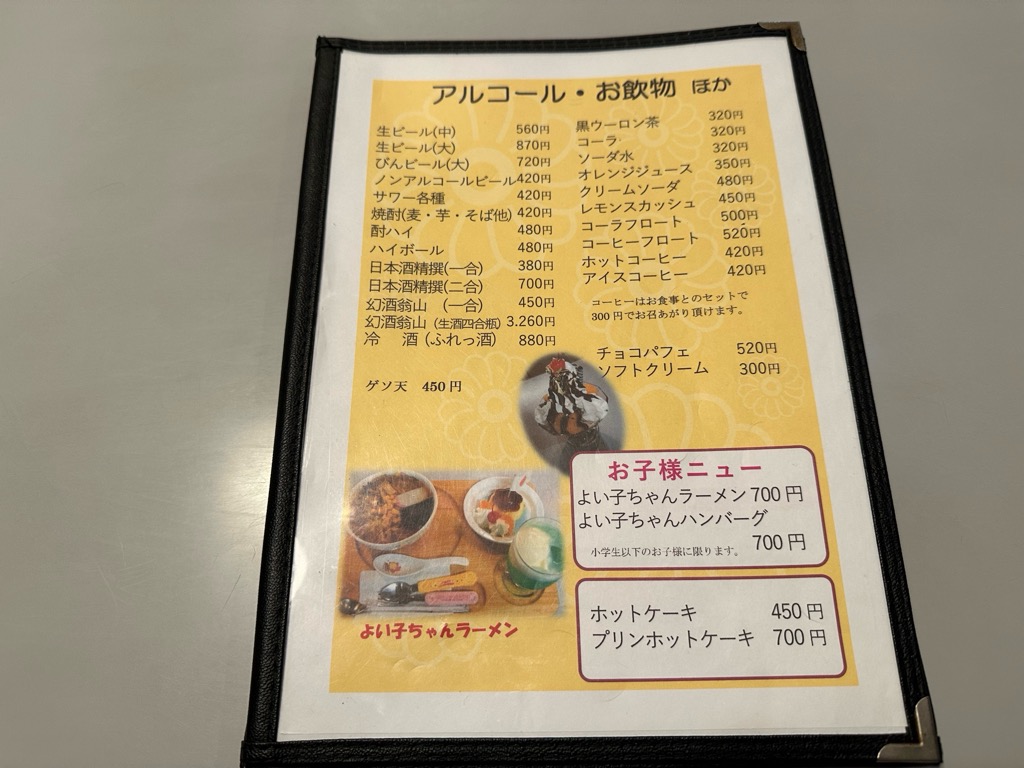 アルコール・お飲物 ほか
生ビール(中) 560円
生ビール(大) 870円
びんビール(大) 720円
ノンアルコールビール 420円
サワー各種 420円
焼酎(麦・芋・そば他) 420円
酎ハイ 480円
ハイボール 480円
日本酒精撰(一合) 380円
日本酒精撰(二合) 700円
幻酒翁山 (一合) 450円
幻酒翁山 (生酒四合瓶) 3.260円
冷 酒 (ふれっ酒) 880円
ゲソ天 450円
黒ウーロン茶 320円
コーラ 320円
ソーダ水 320円
オレンジジュース 350円
クリームソーダ 480円
レモンスカッシュ 450円
コーラフロート 500円
コーヒーフロート 520円
ホットコーヒー 420円
アイスコーヒー 420円
コーヒーはお食事とのセットで
300円でお召あがり頂けます。
チョコパフェ 520円
ソフトクリーム 300円
お子様ニュー
よい子ちゃんラーメン 700円
よい子ちゃんハンバーグ
700円
小学生以下のお子様に限ります。
よい子ちゃんラーメン
ホットケーキ 450円
プリンホットケーキ 700円